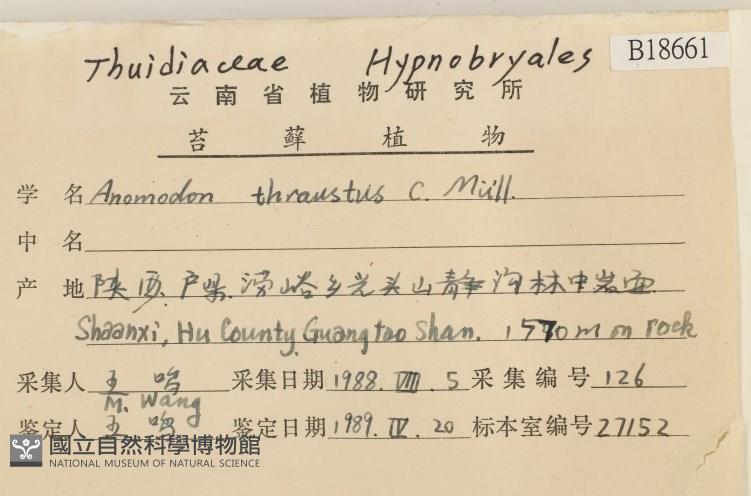 Thuidiaceae Hypnobryales
B18661
云南省植物研究所
苔藓植物
学名 Anomodon thraustus C. Müll.
中名
产地 陕西户县涝峪乡光头山静沟林中岩面
Shaanxi, Hu County, Guangtao Shan. 1570m on rock
采集人 王 采集日期 1988. VIII. 5 采集编号 126
M. Wang
鉴定人 王 鉴定日期 1989. IV. 20 标本室编号 27152
國立自然科學博物館
NATIONAL MUSEUM OF NATURAL SCIENCE